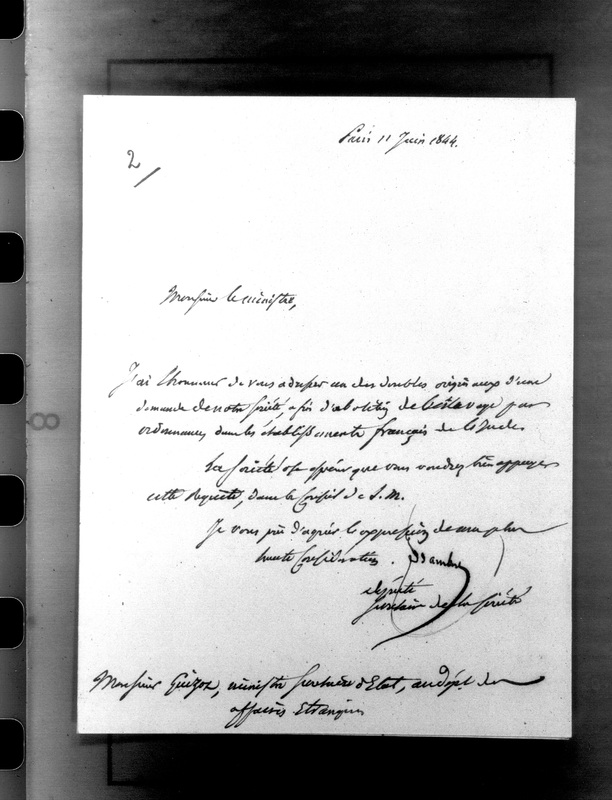 Paris 11 Juin 1844.
2/
Monsieur le ministre,
J'ai l'honneur de vous adresser un des doubles originaux d'une
demande de notre Société, afin d'abolition de l'esclavage par
ordonnances dans les établissements français de l'Inde.
La Société ose espérer que vous voudrez bien appuyer
cette Requête, dans le Conseil de S. M.
Je vous prie d'agréer l'expression de ma plus
haute Considération.
député
Secrétaire de la Société
Monsieur Guizot, ministre Secrétaire d'Etat, au dépt. des
affaires Etrangères
8